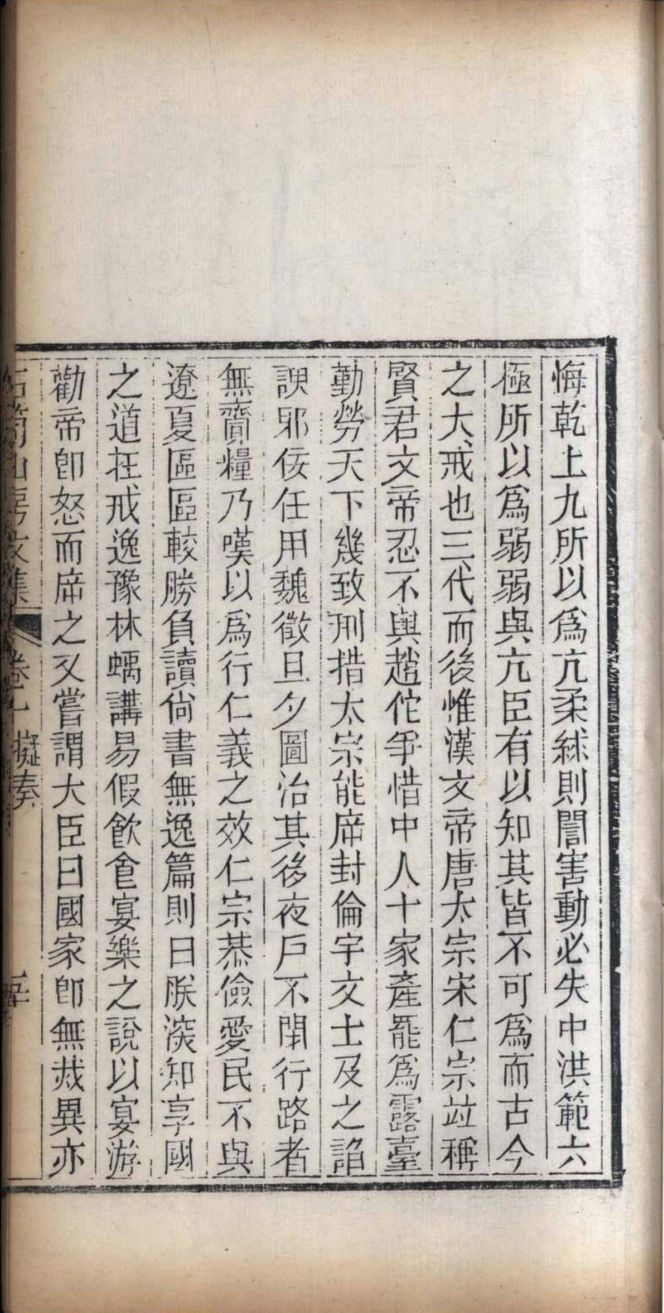 悔乾上九所以爲亢柔綠則闇害動必失中洪範六
極所以爲弱弱與亢臣有以知其皆不可爲而古今
之大戒也三代而後惟漢文帝唐太宗宋仁宗竝稱
賢君文帝忍不與趙佗爭惜中人十家產罷爲露臺
勤勞天下幾致刑措太宗能斥封倫宇文士及之諂
諛邪佞任用魏徵旦夕圖治其後夜戶不閉行路者
無齎糧乃嘆以爲行仁義之效仁宗恭儉愛民不與
遼夏區區較勝負讀尙書無逸篇則曰朕深知享國
之道在戒逸豫林瑀講易假飮食宴樂之說以宴游
勸帝卽怒而斥之又嘗謂大臣曰國家卽無烖異亦
石笥山房文集 卷 擬奏